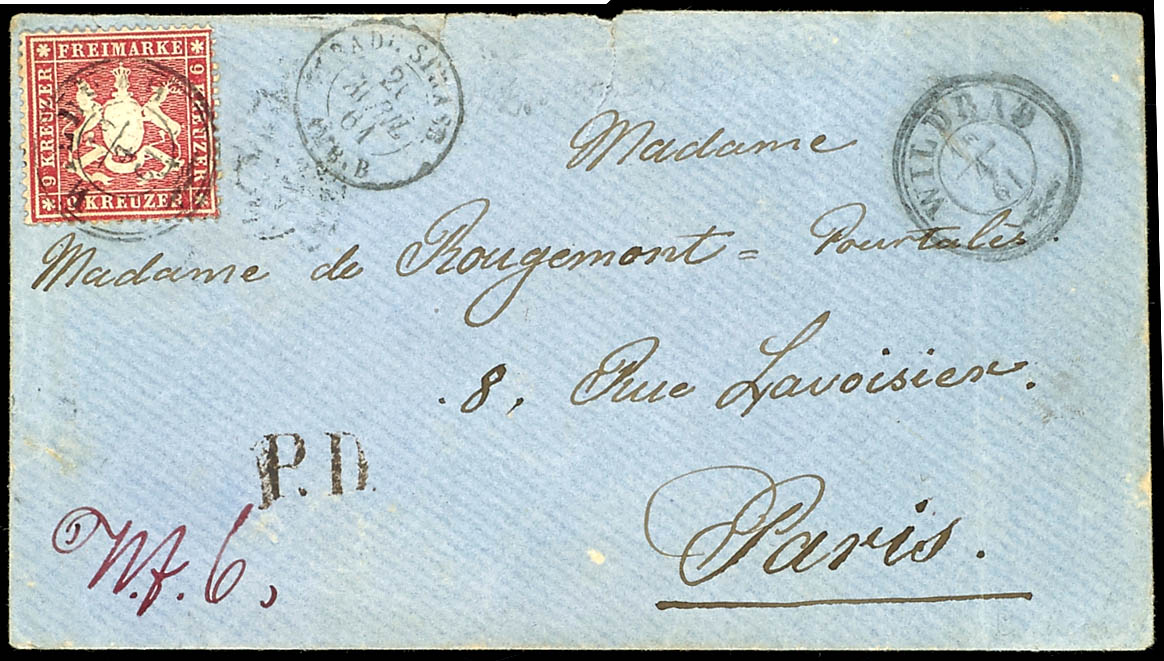 FREIMARKE
9 KREUZER
9 KREUZER
9 KREUZER
BADE STRASB
21
AVRIL
61
AMB. B
WILDBAD
4
61
Madame
Madame de Rougemont = Pourtalès.
8, Rue Lavoisier.
Paris.
P.D.
W.f. 6,